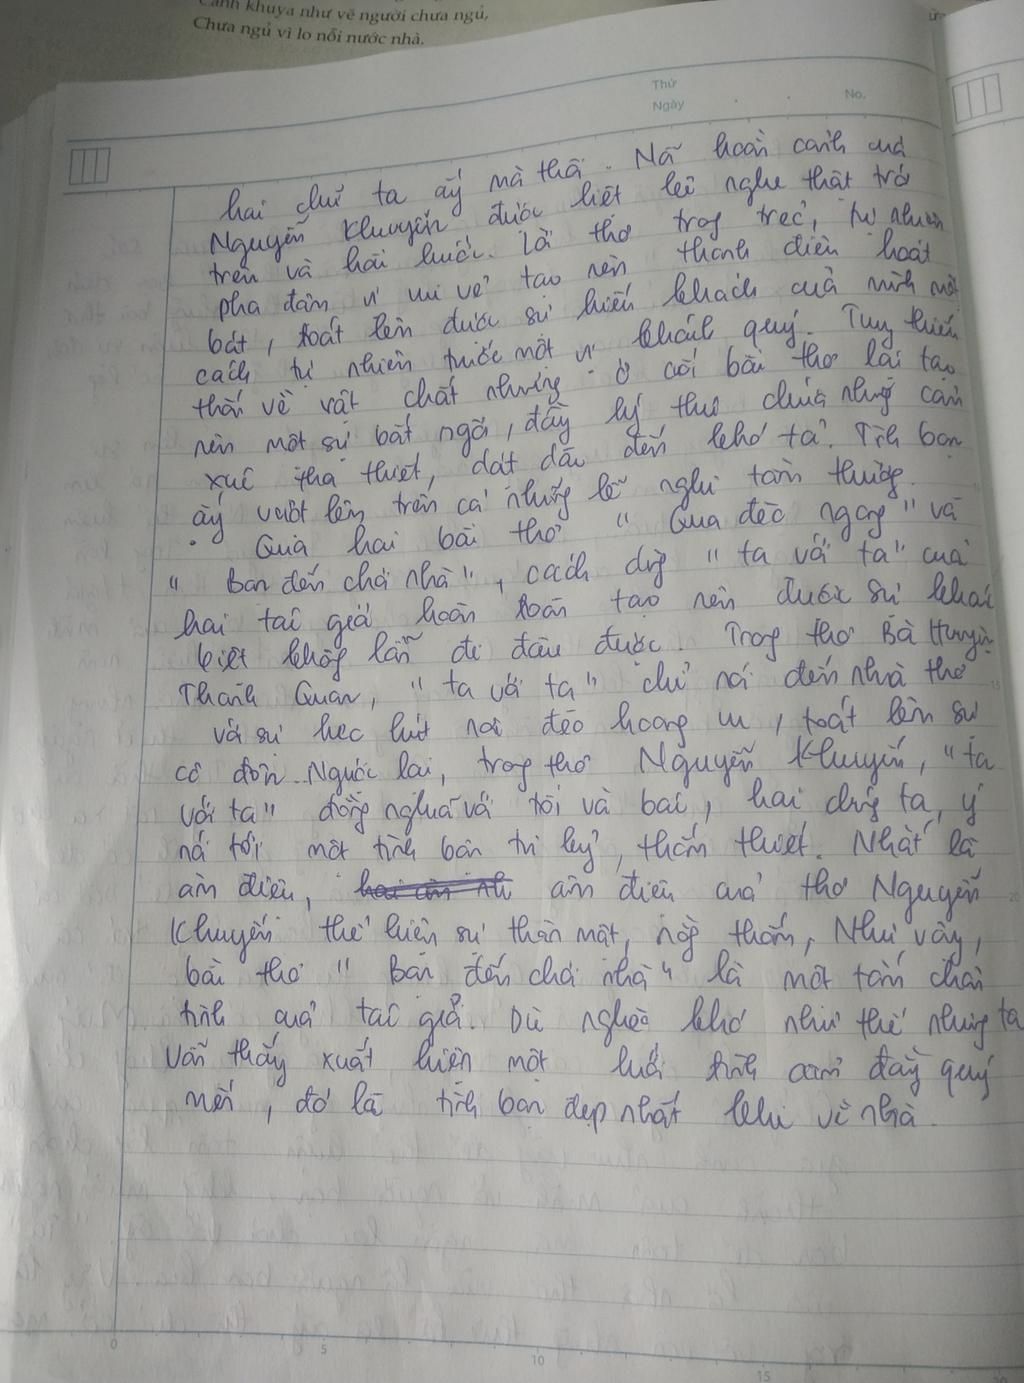 Cảnh khuya như vẽ người chưa ngủ,
Chưa ngủ vì lo nỗi nước nhà.
Thứ
Ngày No.
hai chữ ta ấy mà thôi. Nỗ hoàn cảnh của
Nguyễn Khuyến được liệt kê nghe thật trớ
trêu và hài hước. Lời thơ trong trẻo, tự nhiên
pha đậm vị vui vẻ tạo nên thanh điệu hoạt
bát, toát lên được sự hiếu khách của mình một
cách tự nhiên trước một vị khách quý. Tuy thiếu
thốn về vật chất nhưng ở cối bài thơ lại tạo
nên một sự bất ngờ, đầy lý thú chứa những cảm
xúc tha thiết, dạt dào đến khó tả. Tình bạn
ấy vượt lên trên cả những lễ nghi tầm thường.
Qua hai bài thơ " Qua đèo ngang " và
" Bạn đến chơi nhà ", cách dùng " ta với ta " của
hai tác giả hoàn toàn tạo nên được sự khác
biệt không lẫn đi đâu được. Trong thơ Bà Huyện
Thanh Quan, " ta với ta " chỉ nói đến nhà thơ
với sự heo hút nơi đèo hoang vu, toát lên sự
cô đơn. Ngược lại, trong thơ Nguyễn Khuyến, " ta
với ta " đồng nghĩa với tôi và bác, hai chúng ta, ý
nói tới một tình bạn tri kỷ, thắm thiết. Nhất là
âm điệu, âm điệu của thơ Nguyễn
Khuyến thể hiện sự thân mật, nồng thắm, Như vậy,
bài thơ " Bạn đến chơi nhà " là một tấm chân
tình của tác giả. Dù nghèo khó như thế nhưng ta
vẫn thấy xuất hiện một tình cảm đầy quý
mến, đó là tình bạn đẹp nhất khi về nhà.
0 5 10 15 20